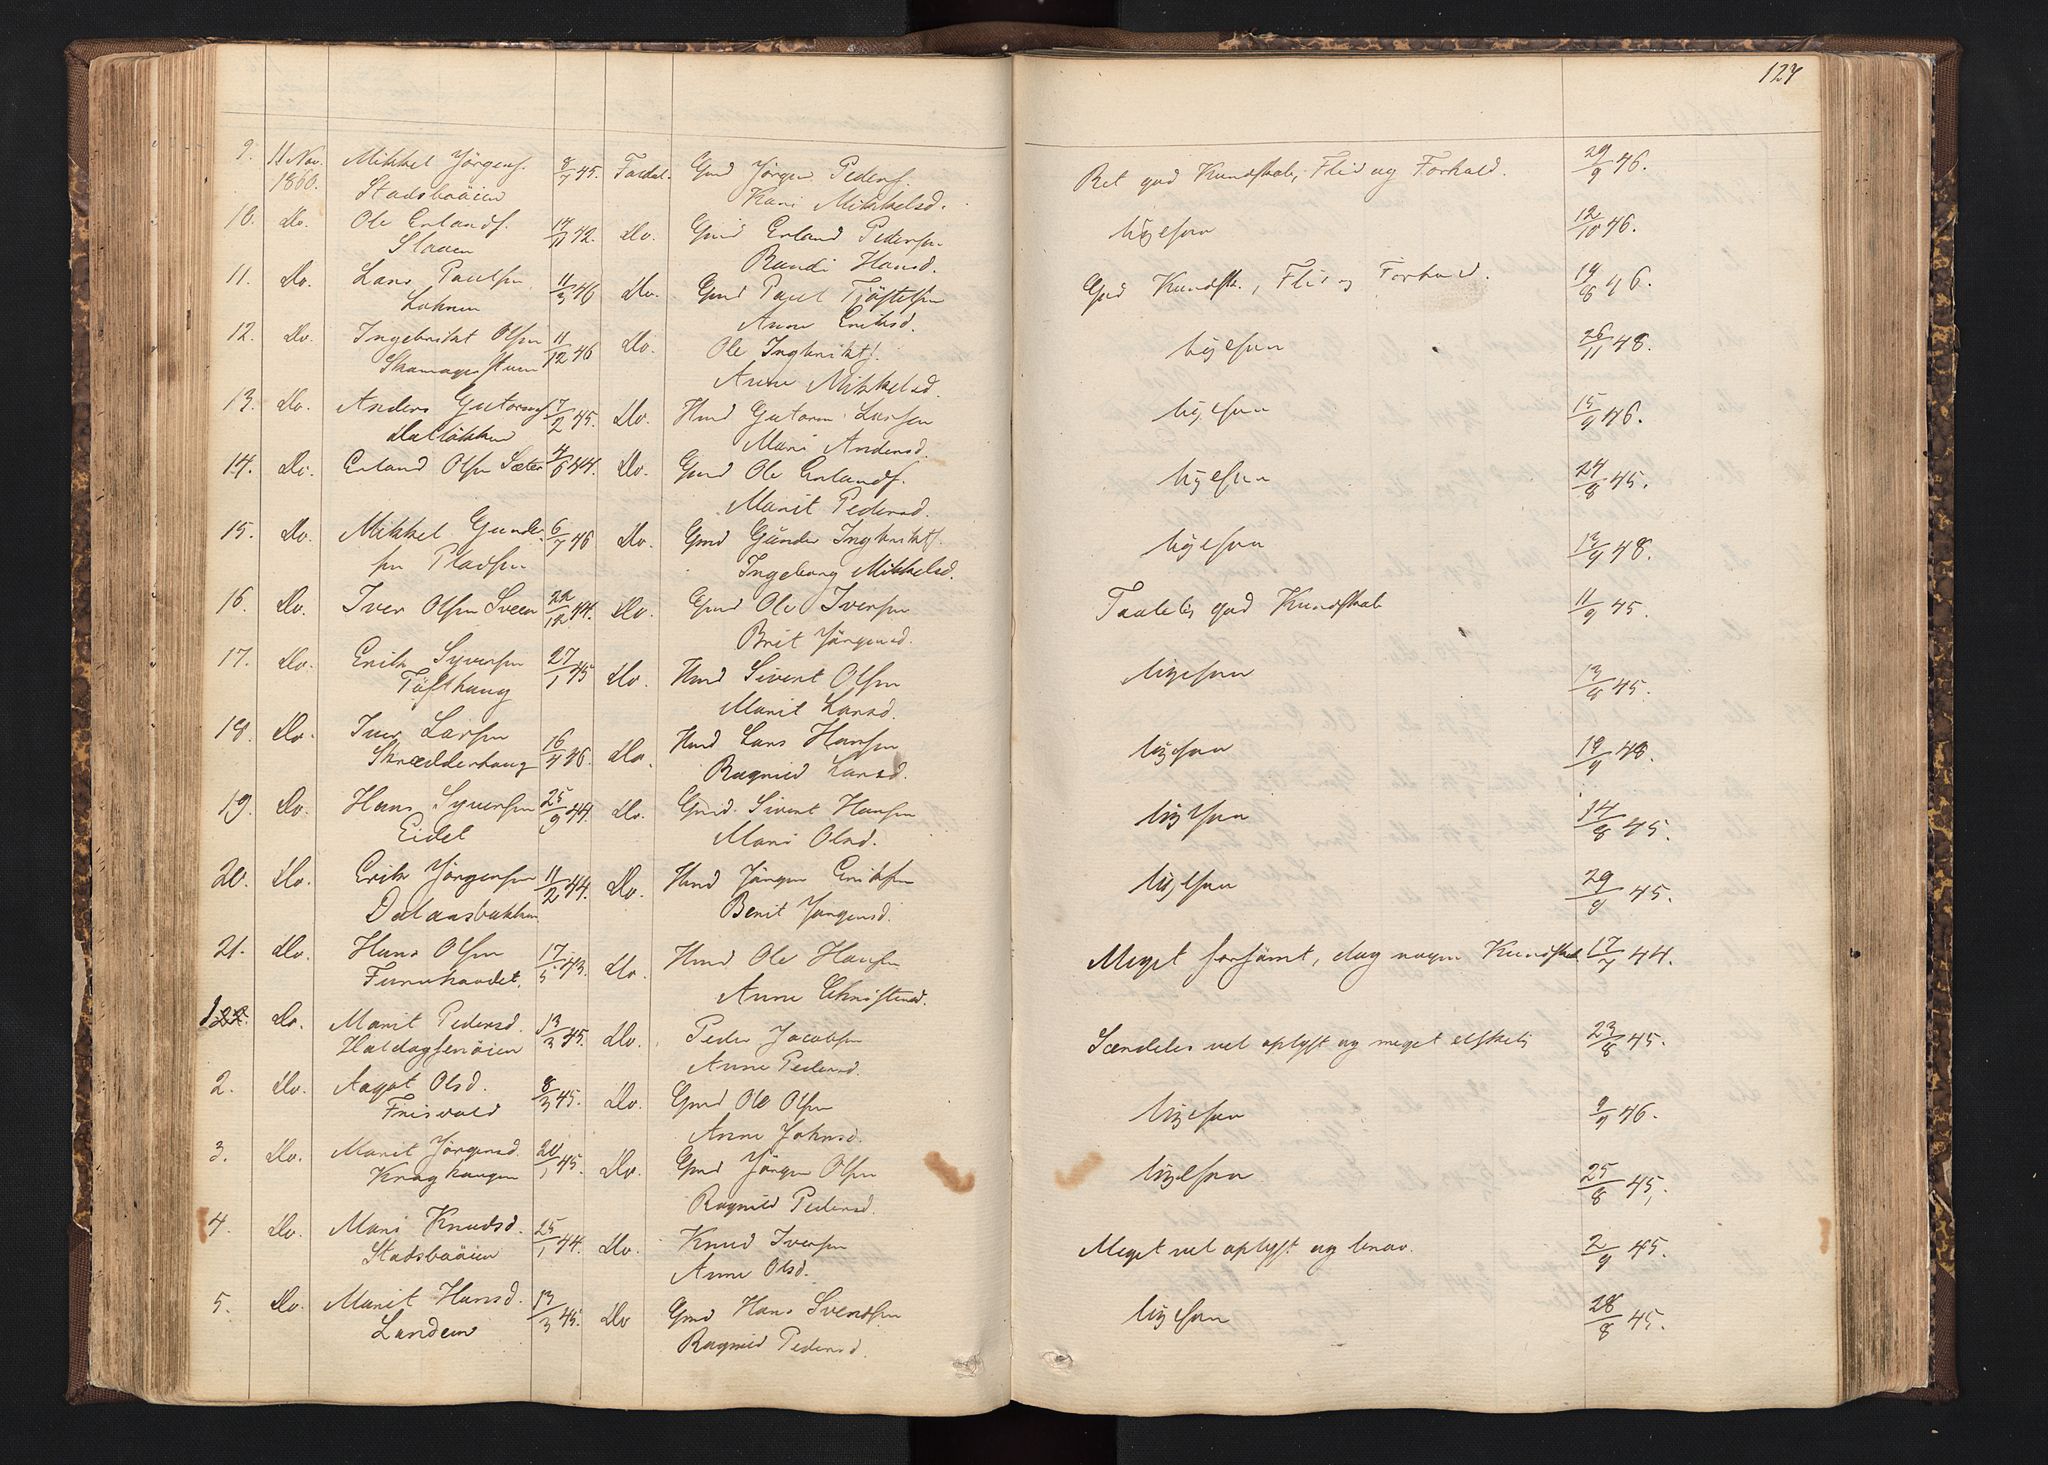 127
9. 11 Nov. Mikkel Jörgens. 8/7 45. Foldal. Gmd Jörgen Peders. Ret god Kundskab, Flid og Forhold. 29/9 46.
1860. Stadsbuöien Kari Mikkelsd.
10. Do. Ole Erlands. 14/11 42. Do. Gmd Erland Pedersen ligesaa 12/10 46.
Slaaen Randi Hansd.
11. Do. Lars Paulsen 11/3 46 Do. Gmd Paul Tjöstelsen God Kundsk., Flid og Forhold. 19/8 46.
Lohnen Anne Eriksd.
12. Do. Ingebrikt Olsen 11/12 46 Do. Ole Ingbrikts. ligesaa 26/11 48.
Anne Mikkelsd.
13. Do. Anders Gutorms. 17/2 45. Do. Hmd Gutorm Larsen ligesaa 15/9 46.
Dallökken Mari Andersd.
14. Do. Erland Olsen Sæter 4/6 44. Do. Gmd Ole Erlands. ligesaa 24/8 45.
Marit Pedersd.
15. Do. Mikkel Gunder- 6/7 46 Do. Gmd Gunder Ingbrikts. ligesaa 13/9 48.
sen Pladsen Ingeborg Mikkelsd.
16. Do. Iver Olsen Sveen 22/12 44. Do. Gmd Ole Iversen Taalelig god Kundskab 11/9 45.
Brit Jörgensd.
17. Do. Erik Syversen 27/1 45 Do. Hmd Sivert Olsen ligesaa 13/8 45.
Töfthaug Marit Larsd.
18. Do. Iver Larsen 16/4 46. Do. Hmd Lars Hansen ligesaa 19/9 48.
Skrædderhaug Ragnild Larsd.
19. Do. Hans Syversen 25/9 44. Do. Gmd. Sivert Hansen ligesaa 14/8 45.
Eidet Mari Olsd.
20. Do. Erik Jörgensen 11/2 44. Do. Hmd Jörgen Eriksen ligesaa 29/9 45.
Dalaasbakken Berit Jörgensd.
21. Do. Hans Olsen 17/5 43. Do. Hmd Ole Hansen Meget forsömt, dog nogen Kundskab 17/7 44.
Furuhovdet. Anne Christensd.
1 22. Do. Marit Pedersd. 13/3 45. Do. Peder Jacobsen Særdeles vel oplyst og meget elskelig 23/8 45.
Haldogsenöien Anne Pedersd.
2. Do. Aagot Olsd. 8/3 45. Do. Gmd Ole Olsen ligesaa 9/9 46.
Frisvold Anne Johnsd.
3. Do. Marit Jörgensd. 20/1 45. Do. Gmd Jörgen Olsen ligesaa 25/8 45.
Kroghaugen Ragnild Pedersd.
4. Do. Mari Knudsd. 25/1 44. Do. Knud Iversen Meget vel oplyst og brav. 2/9 45.
Stadsbuöien Anne Olsd.
5. Do. Marit Hansd. 13/3 45. Do Gmd Hans Svendsen ligesaa 28/8 45.
Landem Ragnild Pedersd.